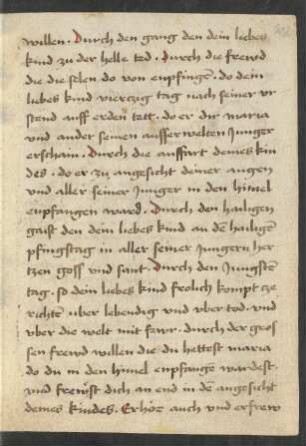 willen · Durch den gang den dein liebes
kind zu der helle ted · Durch die frewd
die die selen do von enpfingē · do dein
liebes kind vierczig tag nach seiner vr
stend auff erden tett · do er dir maria
vnd ander seinen ausserwelten Junger
erschain · Durch die auffart deines kin
des · do er zu angesicht deiner augen
vnd aller seiner Junger in den himel
enpfangen ward · Durch den hailigen
gaist den dein liebes kind an dē hailigē
pfingstag in aller seiner Jungern her
tzen goss vnd sant · Durch den Jungstē
tag · so dein liebes kind frolich kompt cze
richten vber lebendig vnd vber tod · vnd
vber die welt mit fewr · durch der gros
sen frewd willen die du hettest maria
do du in den himel enpfangē wardest ·
vnd frewst dich an end in dē angesicht
deines kindes · Erhöre auch vnd erfrew